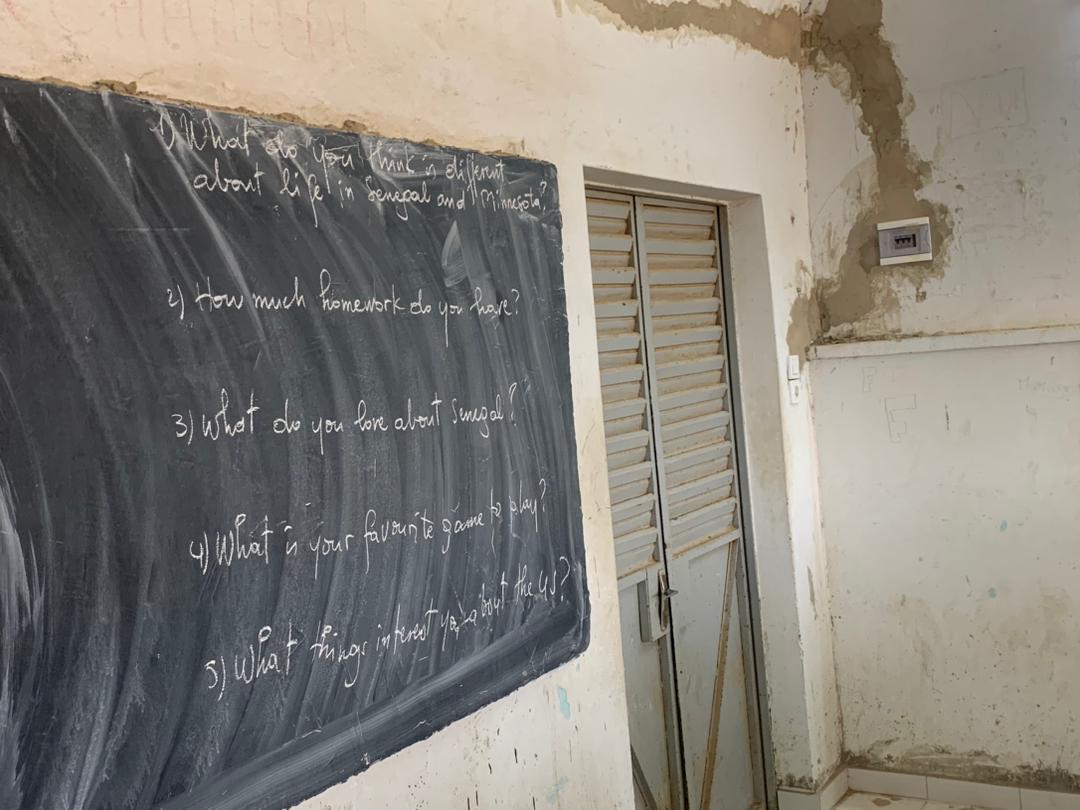 1) What do you think is different
about life in Senegal and Minnesota?
2) How much homework do you have?
3) What do you love about Senegal?
4) What is your favourite game to play?
5) What things interest you about the US?